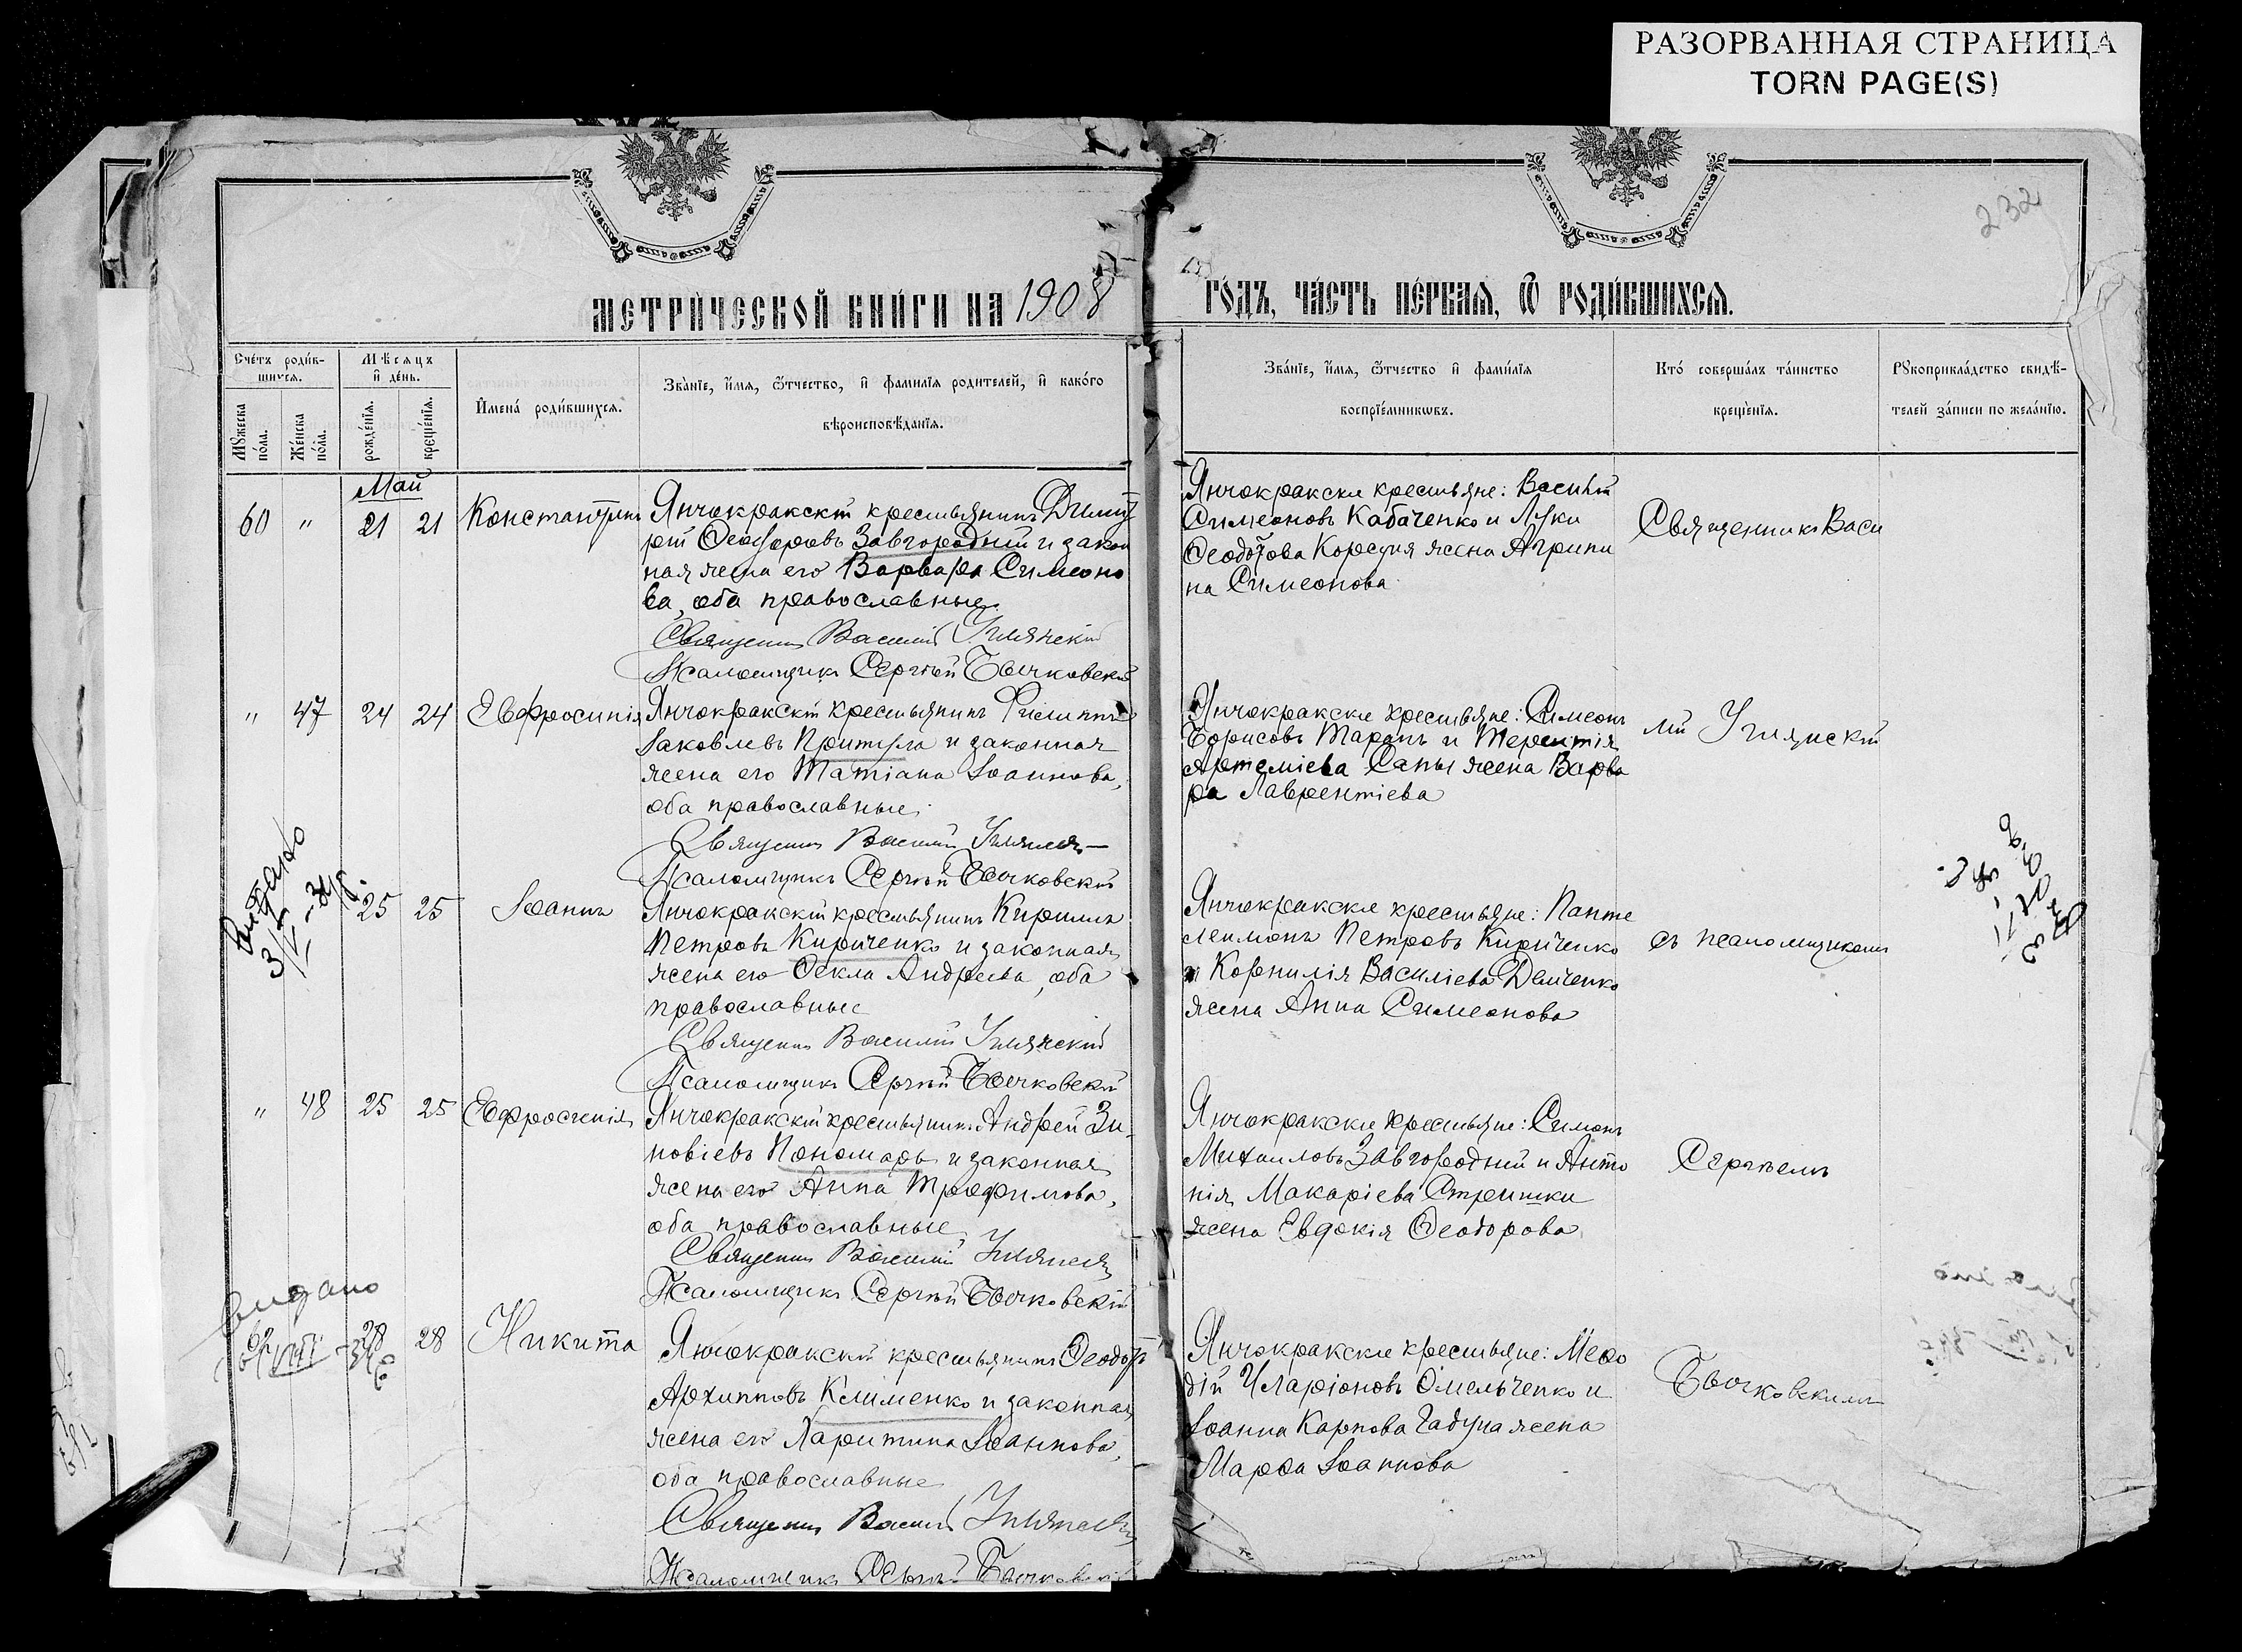 РАЗОРВАННАЯ СТРАНИЦА
TORN PAGE(S)
232
МЕТРИ́ЧЕСКОЙ КНИ́ГИ НА 1908
ГО́ДЪ, ЧА́СТЬ ПЕ́РВАЯ, Ѿ РОДИ́ВШИХСЯ.
Сче́тъ роди́в-
шихся.
Мꙋжеска по́ла.
Же́нска по́ла.
Мѣсяцъ
и҆ де́нь.
рожде́нїя.
креще́нїя.
И҆мена́ роди́вшихся.
Зва́нїе, и҆́мя, ѻ҆́тчество, и҆ фамилїя родителей, и҆ како́го
вѣроисповѣ́данїя.
Зва́нїе, и҆́мя, ѻ҆́тчество и҆ фами́лїя
воспрїе́мникѡвъ.
Кто́ соверша́лъ та́инство
креще́нїя.
Рꙋкоприкла́дство свидѣ́-
телей за́писи по жела́нїю.
Май
60 " 21 21 Константинъ
Янчокракскій крестьянинъ Димит
рій Ѳеодоровъ Завгородній и закон
ная жена его Варвара Симеоно
ва, оба православные.
Священникъ Василій
Псаломщикъ Сергѣй Бычковскій
Янчокракскіе крестьяне: Василій
Симеоновъ Кабаченко и Луки
Ѳеодотова жена Агрипи
на Симеонова
Священникъ Васи
" 47 24 24 Евфросинія
Янчокракскій крестьянинъ Филиппъ
Іаковлевъ Притула и законная
жена его Татіана Іоаннова,
оба православные.
Священникъ Василій
Псаломщикъ Сергѣй Бычковскій
Янчокракскіе крестьяне: Симеонъ
Борисовъ Таранъ и Терентія
Артеміева Сапы жена Варва
ра Лаврентіева
лій
Видано
25 25 Іоаннъ
Янчокракскій крестьянинъ Кириллъ
Петровъ Кириченко и законная
жена его Ѳекла Андреева, оба
православные
Священникъ Василій
Псаломщикъ Сергѣй Бычковскій
Янчокракскіе крестьяне: Панте
леимонъ Петровъ Кириченко
и Корнилія Василіева Демченко
жена Анна Симеонова
съ псаломщикомъ
" 48 25 25 Евфросинія
Янчокракскій крестьянинъ Андрей Зи-
новіевъ Пономарь и законная
жена его Анна Трофимова,
оба православные
Священникъ Василій
Псаломщикъ Сергѣй Бычковскій
Янчокракскіе крестьяне: Симонъ
Михаиловъ Завгородній и Анто
нія Макаріева
жена Евдокія Ѳеодорова
Сергѣемъ
Видано
62 28 28 Никита
Янчокракскій крестьянинъ Ѳеодотъ
Архипповъ Клименко и законная
жена его Харитина Іоаннова,
оба православные
Священникъ Василій
Псаломщикъ Сергѣй Бычковскій
Янчокракскіе крестьяне: Меѳо
дій Иларіоновъ Омельченко и
Іоанна Карпова Гадуна жена
Марѳа Іоаннова
Бычковскимъ